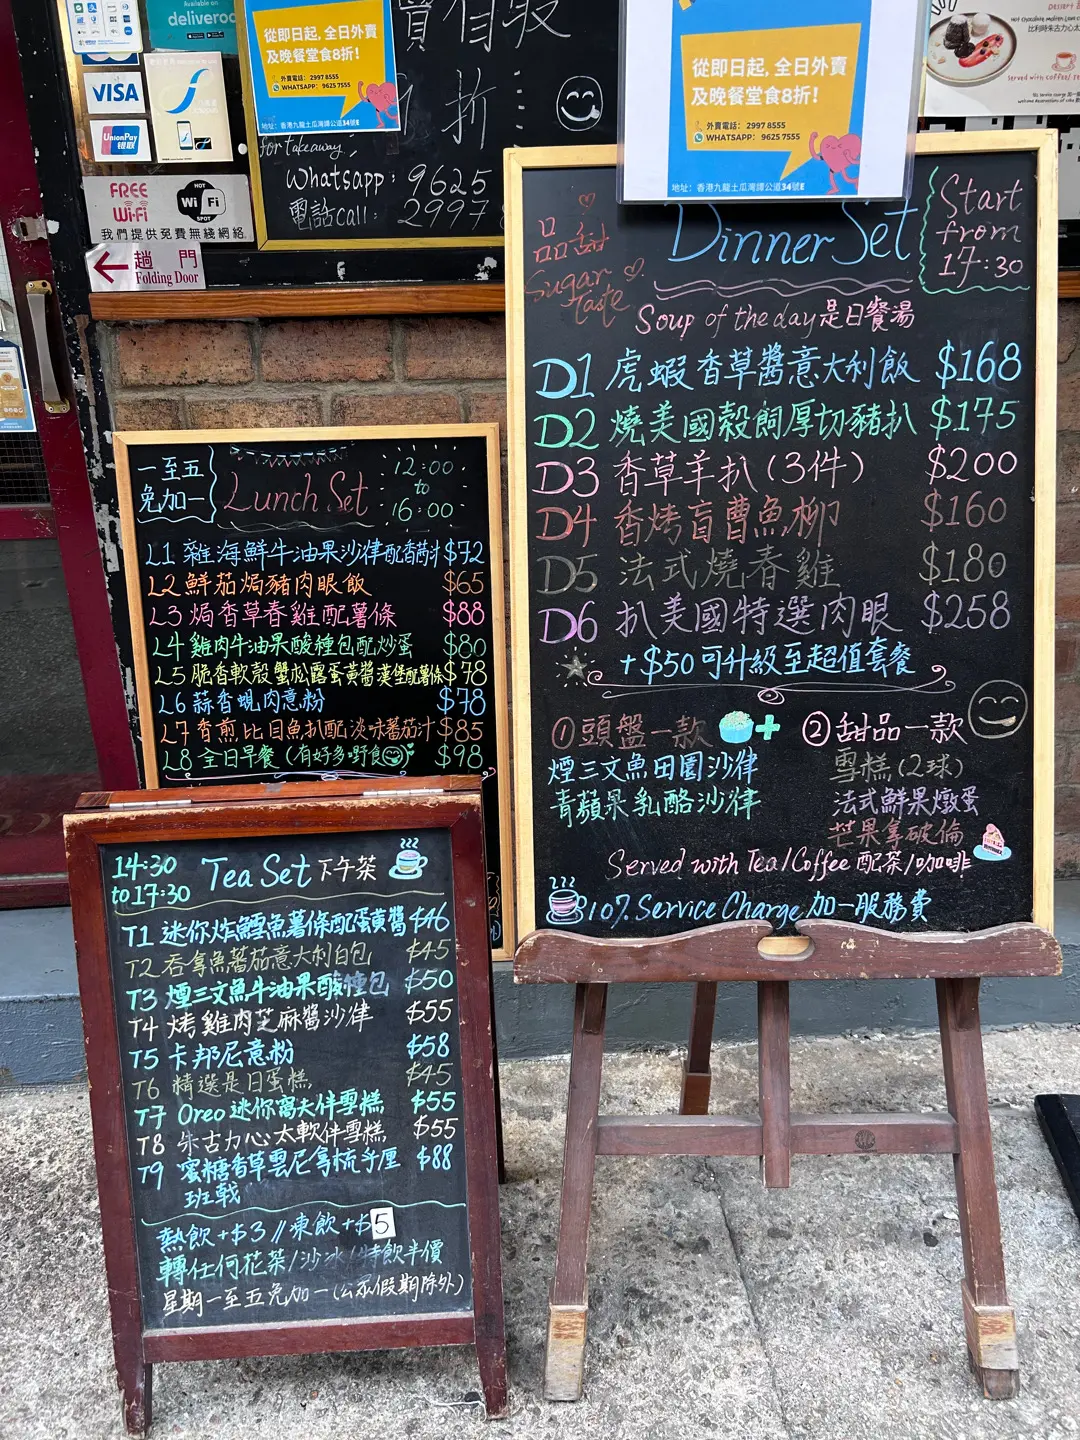 deliveroo
VISA
UnionPay
銀联
FREE
Wi-Fi
HOT
Wi Fi
SPOT
我們提供免費無綫網絡
趟門
Folding Door
從即日起, 全日外賣
及晚餐堂食8折!
外賣電話: 2997 8555
WHATSAPP: 9625 7555
地址: 香港九龍土瓜灣譚公道34號E
折
for takeaway
Whatsapp: 9625
電話call: 2997
從即日起, 全日外賣
及晚餐堂食8折!
外賣電話: 2997 8555
WHATSAPP: 9625 7555
地址: 香港九龍土瓜灣譚公道34號E
Served with coffee/
品甜
Sugar
taste
Dinner Set
Start
from
17:30
Soup of the day 是日餐湯
D1 虎蝦香草醬意大利飯 $168
D2 燒美國穀飼厚切豬扒 $175
D3 香草羊扒 (3件) $200
D4 香烤盲曹魚柳 $160
D5 法式燒春雞 $180
D6 扒美國特選肉眼 $258
+ $50 可升級至超值套餐
① 頭盤一款
煙三文魚田園沙律
青蘋果乳酪沙律
+
② 甜品一款
雪糕 (2球)
法式鮮果燉蛋
芒果拿破倫
Served with Tea/Coffee 配茶/咖啡
10% Service Charge 加一服務費
一至五
免加一
Lunch Set
12:00
to
16:00
L1 雜海鮮牛油果沙律配香茜汁 $72
L2 鮮茄焗豬肉眼飯 $65
L3 焗香草春雞配薯條 $88
L4 雞肉牛油果酸種包配炒蛋 $80
L5 脆香軟殼蟹松露蛋黃醬漢堡配薯條 $78
L6 蒜香蜆肉意粉 $78
L7 香煎比目魚扒配淡味蕃茄汁 $85
L8 全日早餐 (有好多嘢食) $98
14:30
to 17:30
Tea Set 下午茶
T1 迷你炸鱈魚薯條配蛋黃醬 $46
T2 吞拿魚蕃茄意大利白包 $45
T3 煙三文魚牛油果酸種包 $50
T4 烤雞肉芝麻醬沙律 $55
T5 卡邦尼意粉 $58
T6 精選是日蛋糕 $45
T7 Oreo 迷你窩夫伴雪糕 $55
T8 朱古力心太軟伴雪糕 $55
T9 蜜糖香草雲尼拿梳乎厘 $88
班戟
熱飲+$3 // 凍飲+$5
轉任何花茶/沙冰/特飲半價
星期一至五免加一 (公眾假期除外)